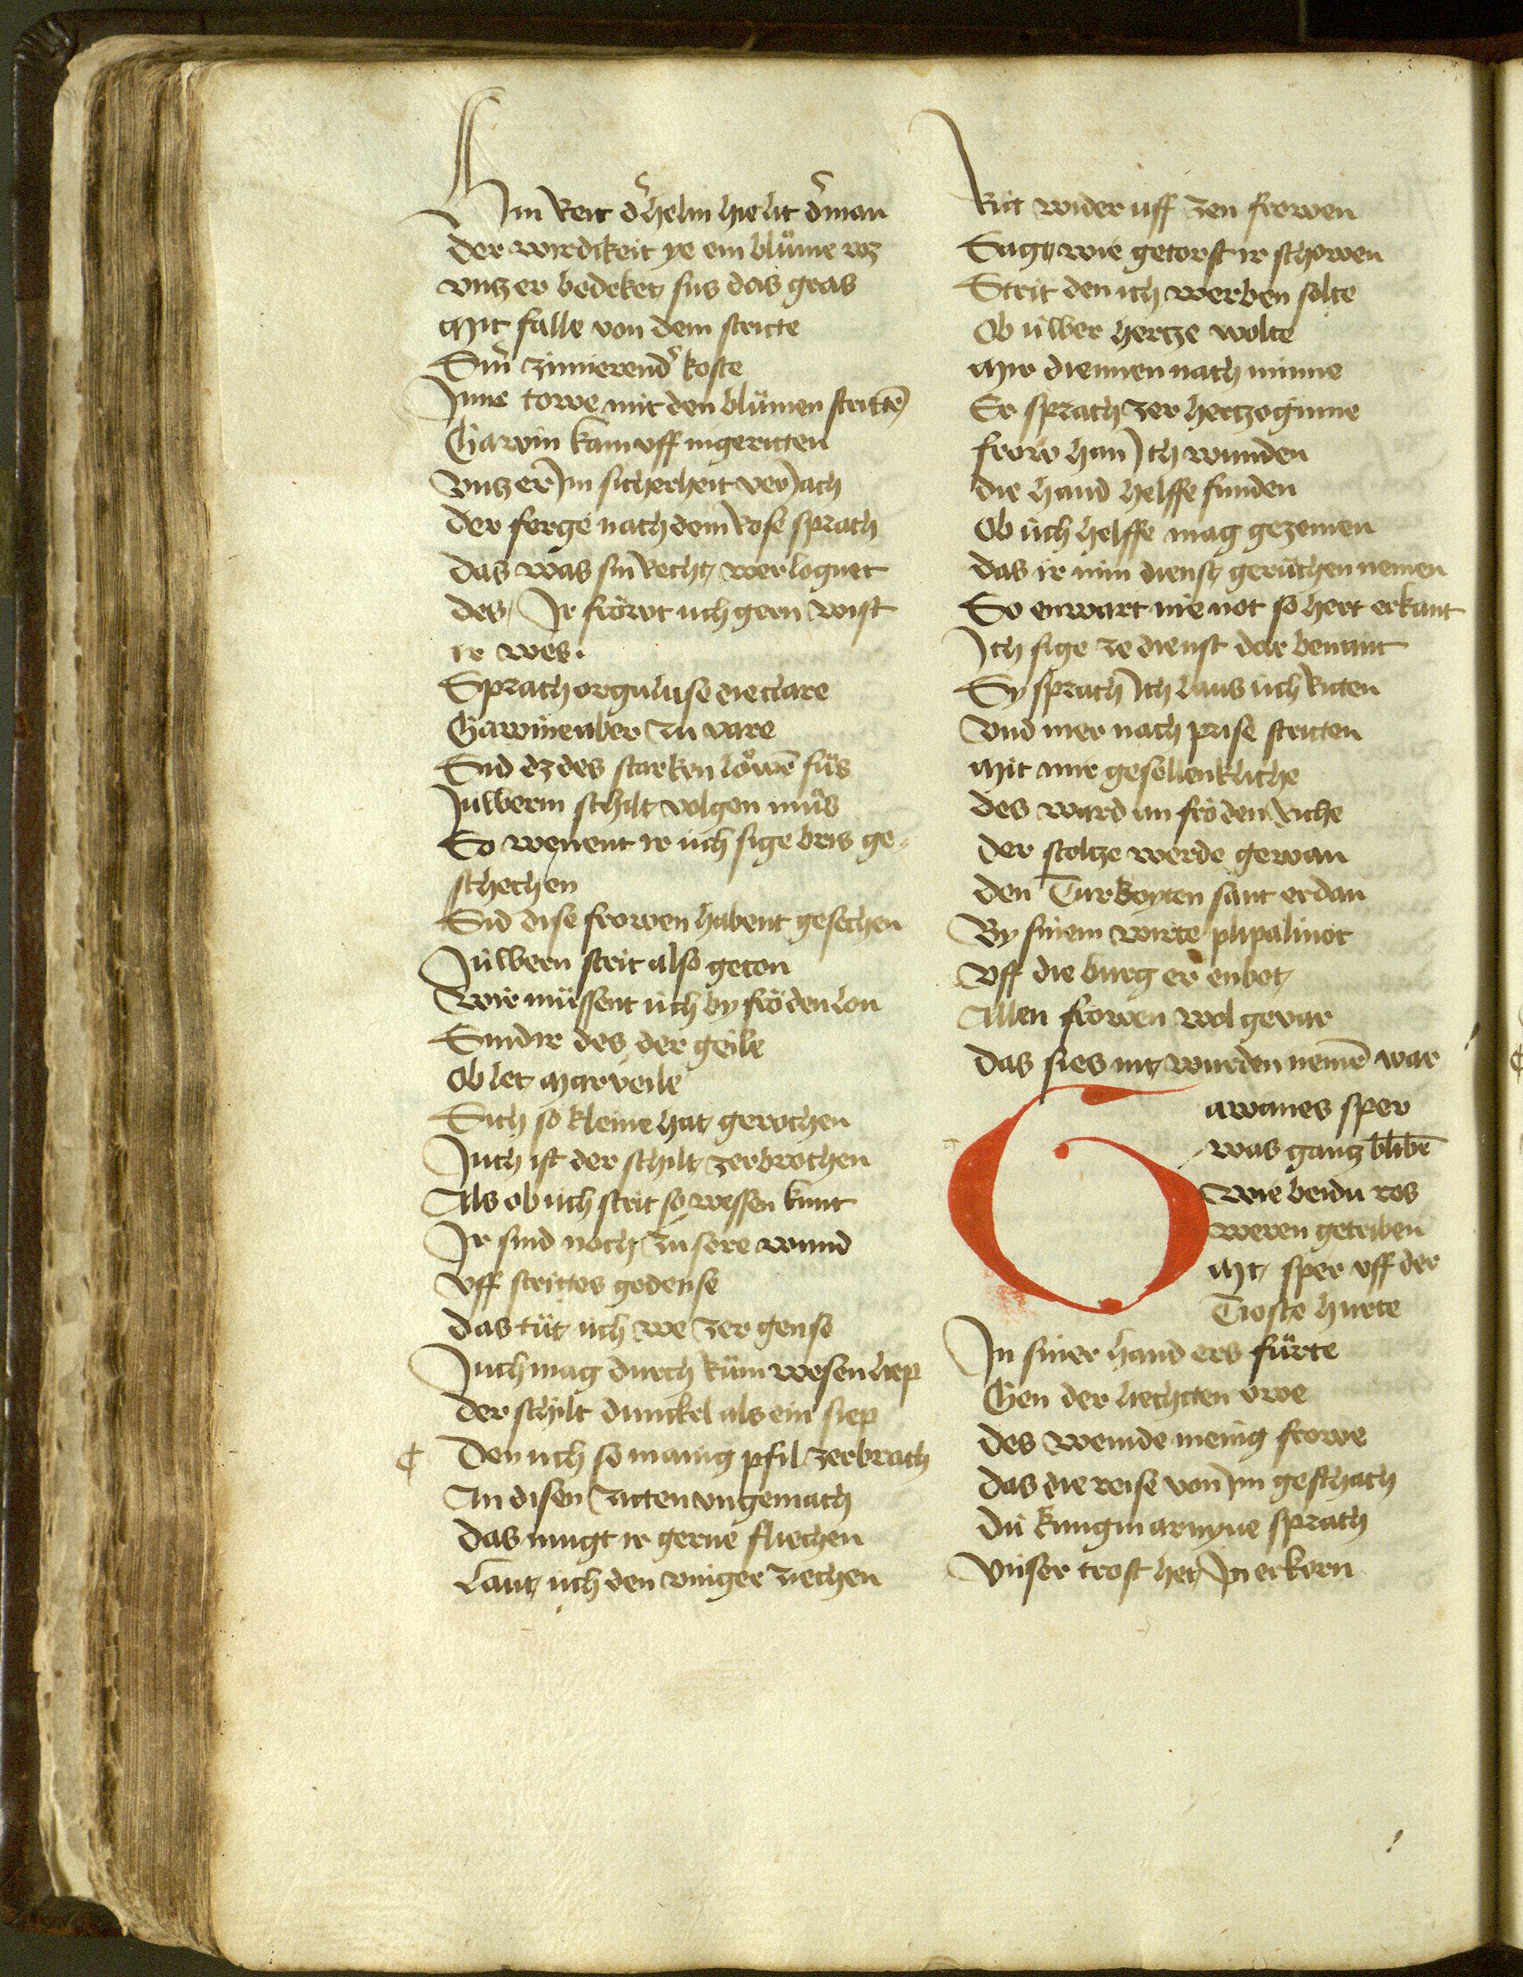 Hin reit d' helm hie lit d' man
der wirdikeit ye ein blůme wz
vntz er bedeket sus das gras
Mit falle von dem stritte
Sin' zimierend' koste
Jnne towe mit den blůmen stritte
Gawin kam vff in geritten
Vntz er Jm sicherheit veriach
der ferge nach dem rose sprach
das was sin recht wer lognet
des / Jr fröwt üch gern wist
ir wes .
Sprach orguluse die clare
Gawinen aber zu vare
Sid dz des starken löwē fůs
Jn üwerm schilt volgen můs
So wenent ir üch sige bris ge=
schechen
Sid dise frowen habent gesechen
Jn üwern strit also geton
Wir müssent üch by fröden lon
Sind ir des der geile
Ob let marveile
Sich so kleine hat gerochen
Juch ist der schilt zerbrochen
Als ob üch strit so wessen kunt
Jr sind noch zu sere wund
Vff strittes gedense
das tüt üch we zer gense
Juch mag durch rům wesen liep
der schilt dunckel als ein siep
Den üch so manig pfil zerbrach
An disen zitten vngemach
das mugt ir gerne fliechen
Lant üch den vinger ziechen
Ritt wider uff zen frowen
Sagt wie getorst ir schowen
Strit den ich werben solte
Ob üwer hertze wolte
Mir diennen nach minne
Er sprach zer hertzoginne
frow han Jch wunden
die hand helffe funden
Ob üch helffe mag gezemen
das ir min dienst gerüchen nemen
So enwart nie not so hert erkant
Jch sige ze dienst dar benant
Sy sprach Jch laus üch riten
Vnd mer nach prise stritten
Mit mir gesellenkliche
des ward an fröden riche
der stoltze werde gewan
den Turkoyten sant er dan
By sinem wirte plipalinot
Vff die burg er enbot
Allen frowen wol gevar
das sies mit wurden nemē war
Gawanes sper
was gantz blibē
Wie beidu ros
weren getriben
Mit sper vff der
Tioste hurte
Jn siner hand ers fürte
Gen der liechtten owe
des weinde menig frowe
das die reise von Jm geschach
dü kungin arnyue sprach
Vnser trost het Jm erkorn